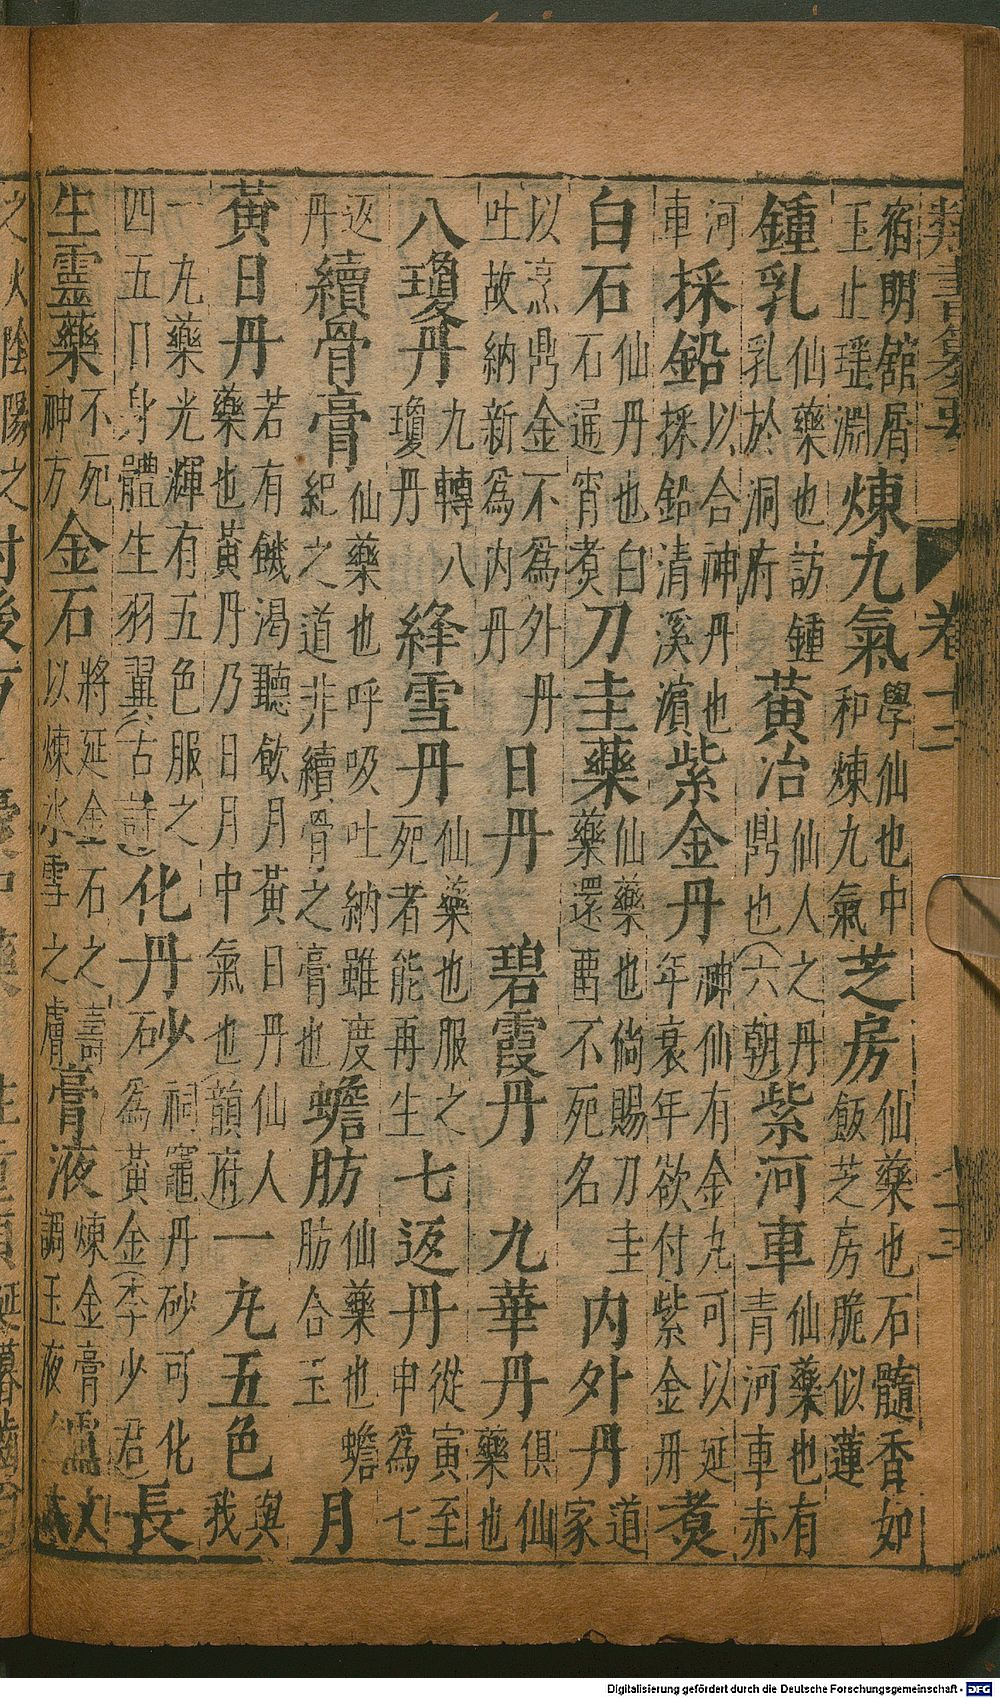 類書纂要 卷十二
宿明舘屑玉止瑤淵煉九氣學仙也中和煉九氣芝房仙藥也石髓香如飯芝房脆似蓮
鍾乳仙藥也訪鍾乳於洞府黃冶仙人之丹鼎也(六朝)紫河車仙藥也有青河車赤
河車採鉛以合神丹也採鉛清溪濵紫金丹神仙有金丸可以延年衰年欲付紫金丹煑
白石仙丹也白石通宵煑刀圭藥仙藥也倘賜刀圭藥還畱不死名內外丹道家
以烹鼎金不爲外丹吐故納新爲內丹日丹 碧霞丹 九華丹俱仙藥也
八瓊丹九轉八瓊丹絳雪丹仙藥也服之死者能再生七返丹從寅至申爲七
返丹續骨膏仙藥也呼吸吐納雖度紀之道非續骨之膏也蟾肪仙藥也蟾肪合玉月
黃日丹若有饑渴聽飲月黃日丹仙人藥也黃丹乃日月中氣也(韻府)一丸五色與我
一丸藥光輝有五色服之四五日身體生羽翼(古詩)化丹砂祠竈丹砂可化石爲黃金(李少君)長
生靈藥不死神方金石將延金石之壽以煉氷雪之膚膏液煉金膏靈調玉液
之火陰陽之
Digitalisierung gefördert durch die Deutsche Forschungsgemeinschaft - DFG